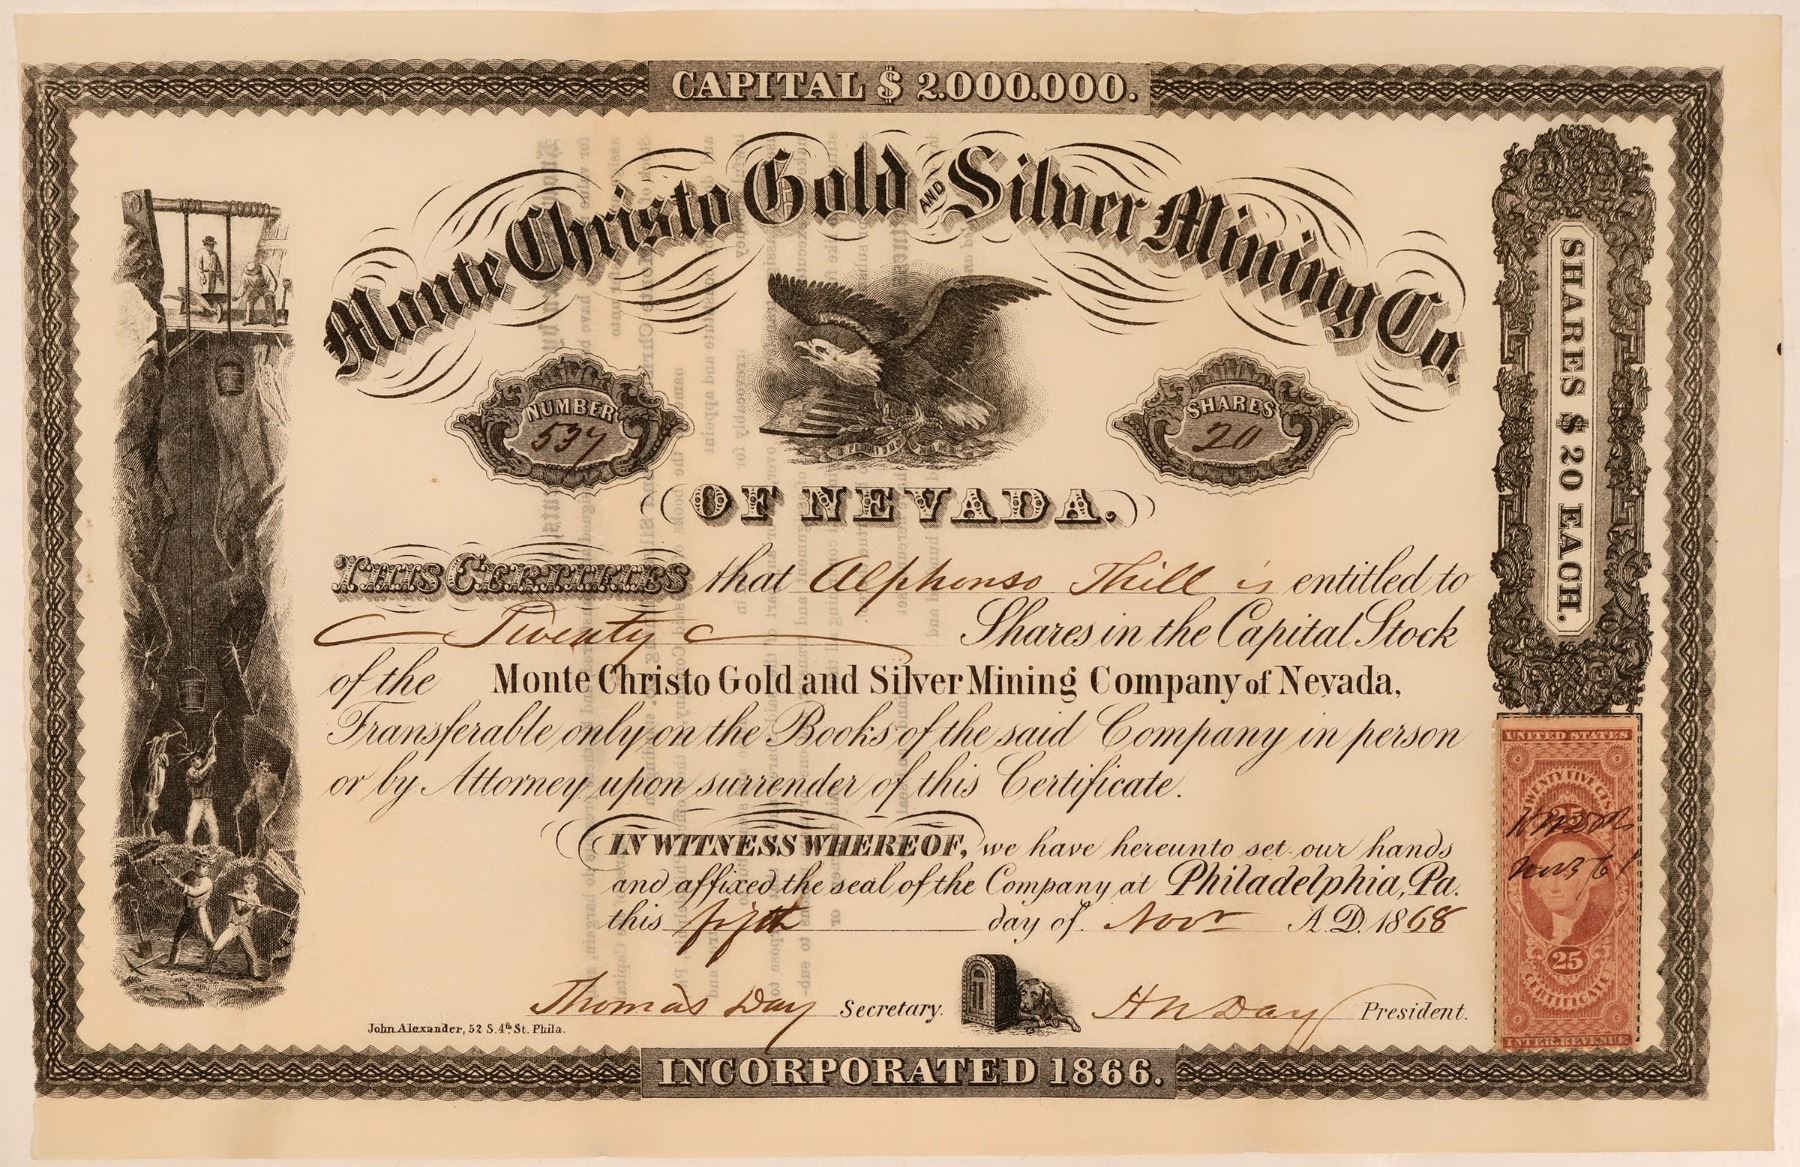 CAPITAL $ 2.000.000.
Monte Christo Gold AND Silver Mining Co.
NUMBER
537
SHARES
20
OF NEVADA.
SHARES $ 20 EACH.
THIS CERTIFIES that Alphonso Thill is entitled to
Twenty Shares in the Capital Stock
of the Monte Christo Gold and Silver Mining Company of Nevada,
Transferable only on the Books of the said Company in person
or by Attorney upon surrender of this Certificate.
IN WITNESS WHEREOF, we have hereunto set our hands
and affixed the seal of the Company at Philadelphia, Pa.
this fifth day of Novr A.D. 1868
Thomas Day Secretary. H N Day President.
John Alexander, 52 S. 4th St. Phila.
INCORPORATED 1866.
UNITED STATES
TWENTY FIVE CTS.
25
25
CERTIFICATE
INTER. REVENUE